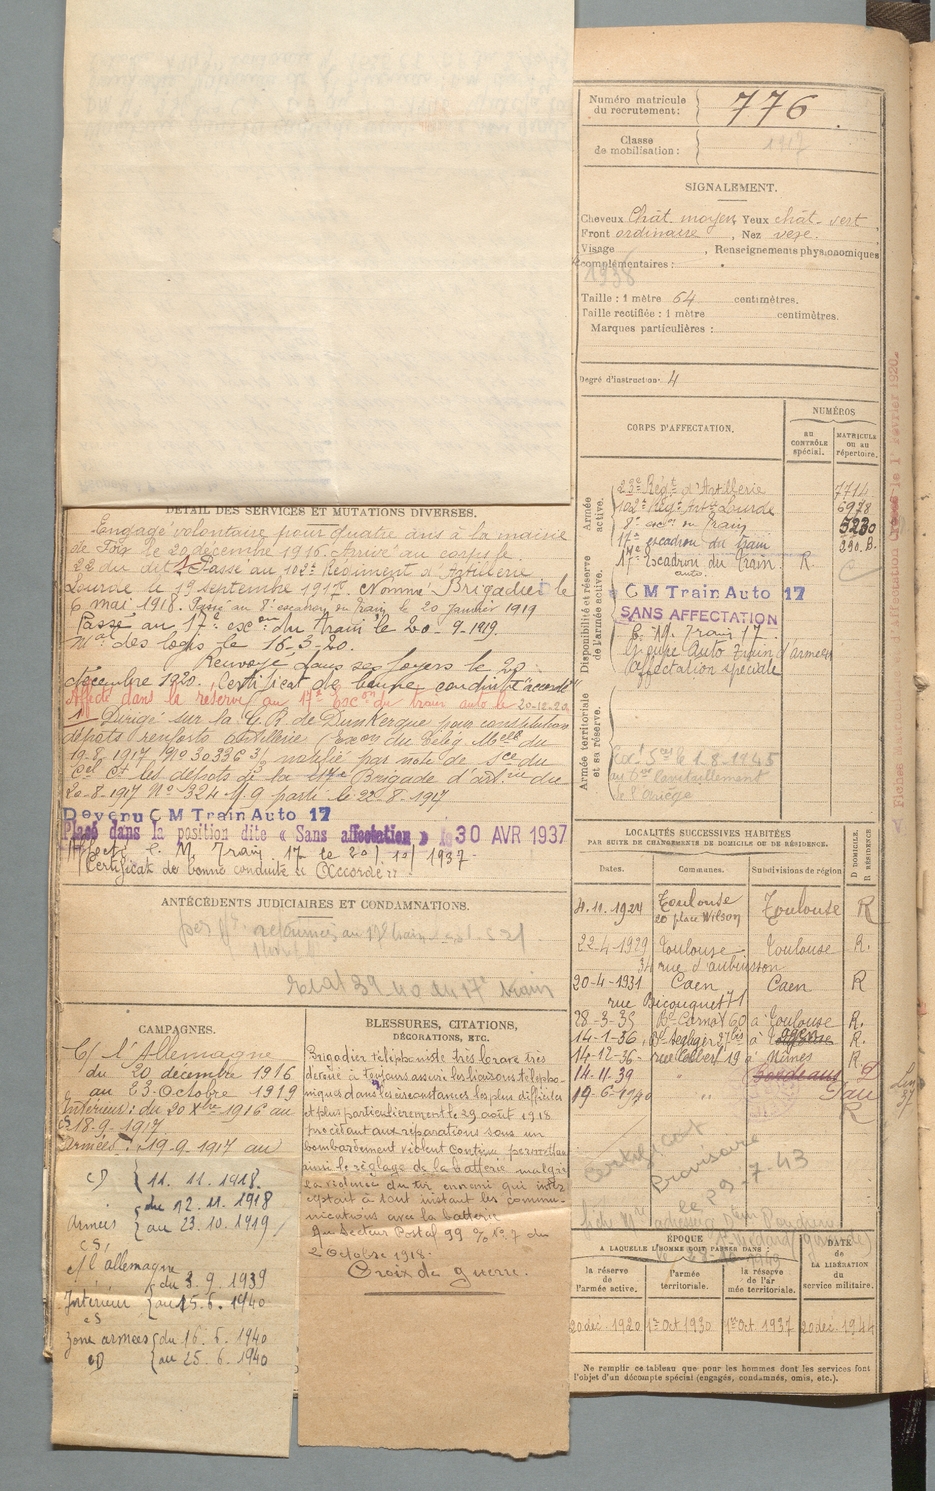 Numéro matricule
du recrutement :
776
Classe
de mobilisation :
1917
SIGNALEMENT.
Cheveux Chât. moyen, Yeux chât-vert
Front ordinaire, Nez vexe.
Visage , Renseignements physionomiques
complémentaires :
1938
Taille : 1 mètre 64 centimètres.
Taille rectifiée : 1 mètre centimètres.
Marques particulières :
Degré d'instruction. 4
CORPS D'AFFECTATION.
NUMÉROS
au
CONTRÔLE
spécial.
MATRICULE
ou au
répertoire.
Armée
active.
23e Regt d'Artillerie 7714
102e Regt Artie Lourde 6978
8e escon du train 5230
17e escadron du train 290.B.
Disponibilité et réserve
de l'armée active.
17e Escadron du Train R.
auto.
C M Train Auto 17
SANS AFFECTATION
C. M. Train 17
Groupe Auto Train d'armée
affectation spéciale
Armée territoriale
et sa réserve.
1-8-1945
de l'Ariège
DÉTAIL DES SERVICES ET MUTATIONS DIVERSES.
Engagé volontaire pour quatre ans à la mairie
de Foix le 20 décembre 1916. Arrivé au corps le
22 du dit Passé au 102e Régiment d'Artillerie
Lourde le 19 septembre 1917. Nommé Brigadier le
6 mai 1918. Passé au 8e escadron du train le 20 janvier 1919
Passé au 17e escon du train le 20-9-1919.
Mal des logis le 16-3-20.
Renvoyé dans ses foyers le 20
décembre 1920. Certificat de bonne conduite "accordé"
Affecté dans la réserve au 17e Escon du train auto le 20-12-20.
1 Dirigé sur la G.R. de Dunkerque pour constitution
dépôts renforts artillerie Exon du Télég. Mell du
19-8-1917 No 30336 3/ notifié par note de sce du
Cel Ct les dépôts de la 17e Brigade d'artrie du
20-8-1917 No 324-M9 parti le 22-8-1917
Devenu C M Train Auto 17
Placé dans la position dite « Sans affectation » le 30 AVR 1937
Affecté C. M. Train 17 le 20/ 12/ 1937-
Certificat de bonne conduite "Accordé"
ANTÉCÉDENTS JUDICIAIRES ET CONDAMNATIONS.
39-40 au 17e train
CAMPAGNES.
C/ l'Allemagne
du 20 décembre 1916
au 23 Octobre 1919
Intérieur : du 20 Xbre 1916 au
CS 18-9-1917
Armées : 19-9-1917 au
CD 11. 11. 1918.
du 12. 11. 1918
Armées au 23. 10. 1919
CS
c/ l'allemagne
du 3. 9. 1939
Intérieur au 15. 6. 1940
CS
Zone armées du 16. 6. 1940
CD au 25. 6. 1940
BLESSURES, CITATIONS,
DÉCORATIONS, ETC.
Brigadier téléphoniste très brave très
dévoué a toujours assuré les liaisons télépho-
niques dans les circonstances les plus difficiles
et plus particulièrement le 29 août 1918
procédant aux réparations sous un
bombardement violent continu permettant
ainsi le réglage de la batterie malgré
la violence du tir ennemi qui inter
ceptait à tout instant les commu-
nications avec la batterie
Au Secteur Postal 99 No 7 du
2 Octobre 1918.
Croix de guerre.
LOCALITÉS SUCCESSIVES HABITÉES
PAR SUITE DE CHANGEMENTS DE DOMICILE OU DE RÉSIDENCE.
Dates. Communes. Subdivisions de région
D DOMICILE.
R RÉSIDENCE
4.11.1924 Toulouse Toulouse R
20 place Wilson
22-4-1929 Toulouse Toulouse R.
34 rue d'aubuisson
20-4-1931 Caen Caen R
rue Bicoquet 71
28-3-35 Bd Carnot 60 à Toulouse R.
14-1-36 R.
14-12-36- rue Colbert 19 à Nîmes R
14-11-39 " Bordeaux D
19-6-1940 " Pau
R
Certificat
Provisoire
le 29-7-43
ÉPOQUE
A LAQUELLE L'HOMME DOIT PASSER DANS :
DATE
de
LA LIBÉRATION
du
service militaire.
la réserve
de
l'armée active.
l'armée
territoriale.
la réserve
de l'ar
mée territoriale.
20 déc. 1920 1er Oct 1930 1er Oct 1937 20 déc. 1944
Ne remplir ce tableau que pour les hommes dont les services font
l'objet d'un décompte spécial (engagés, condamnés, omis, etc.).